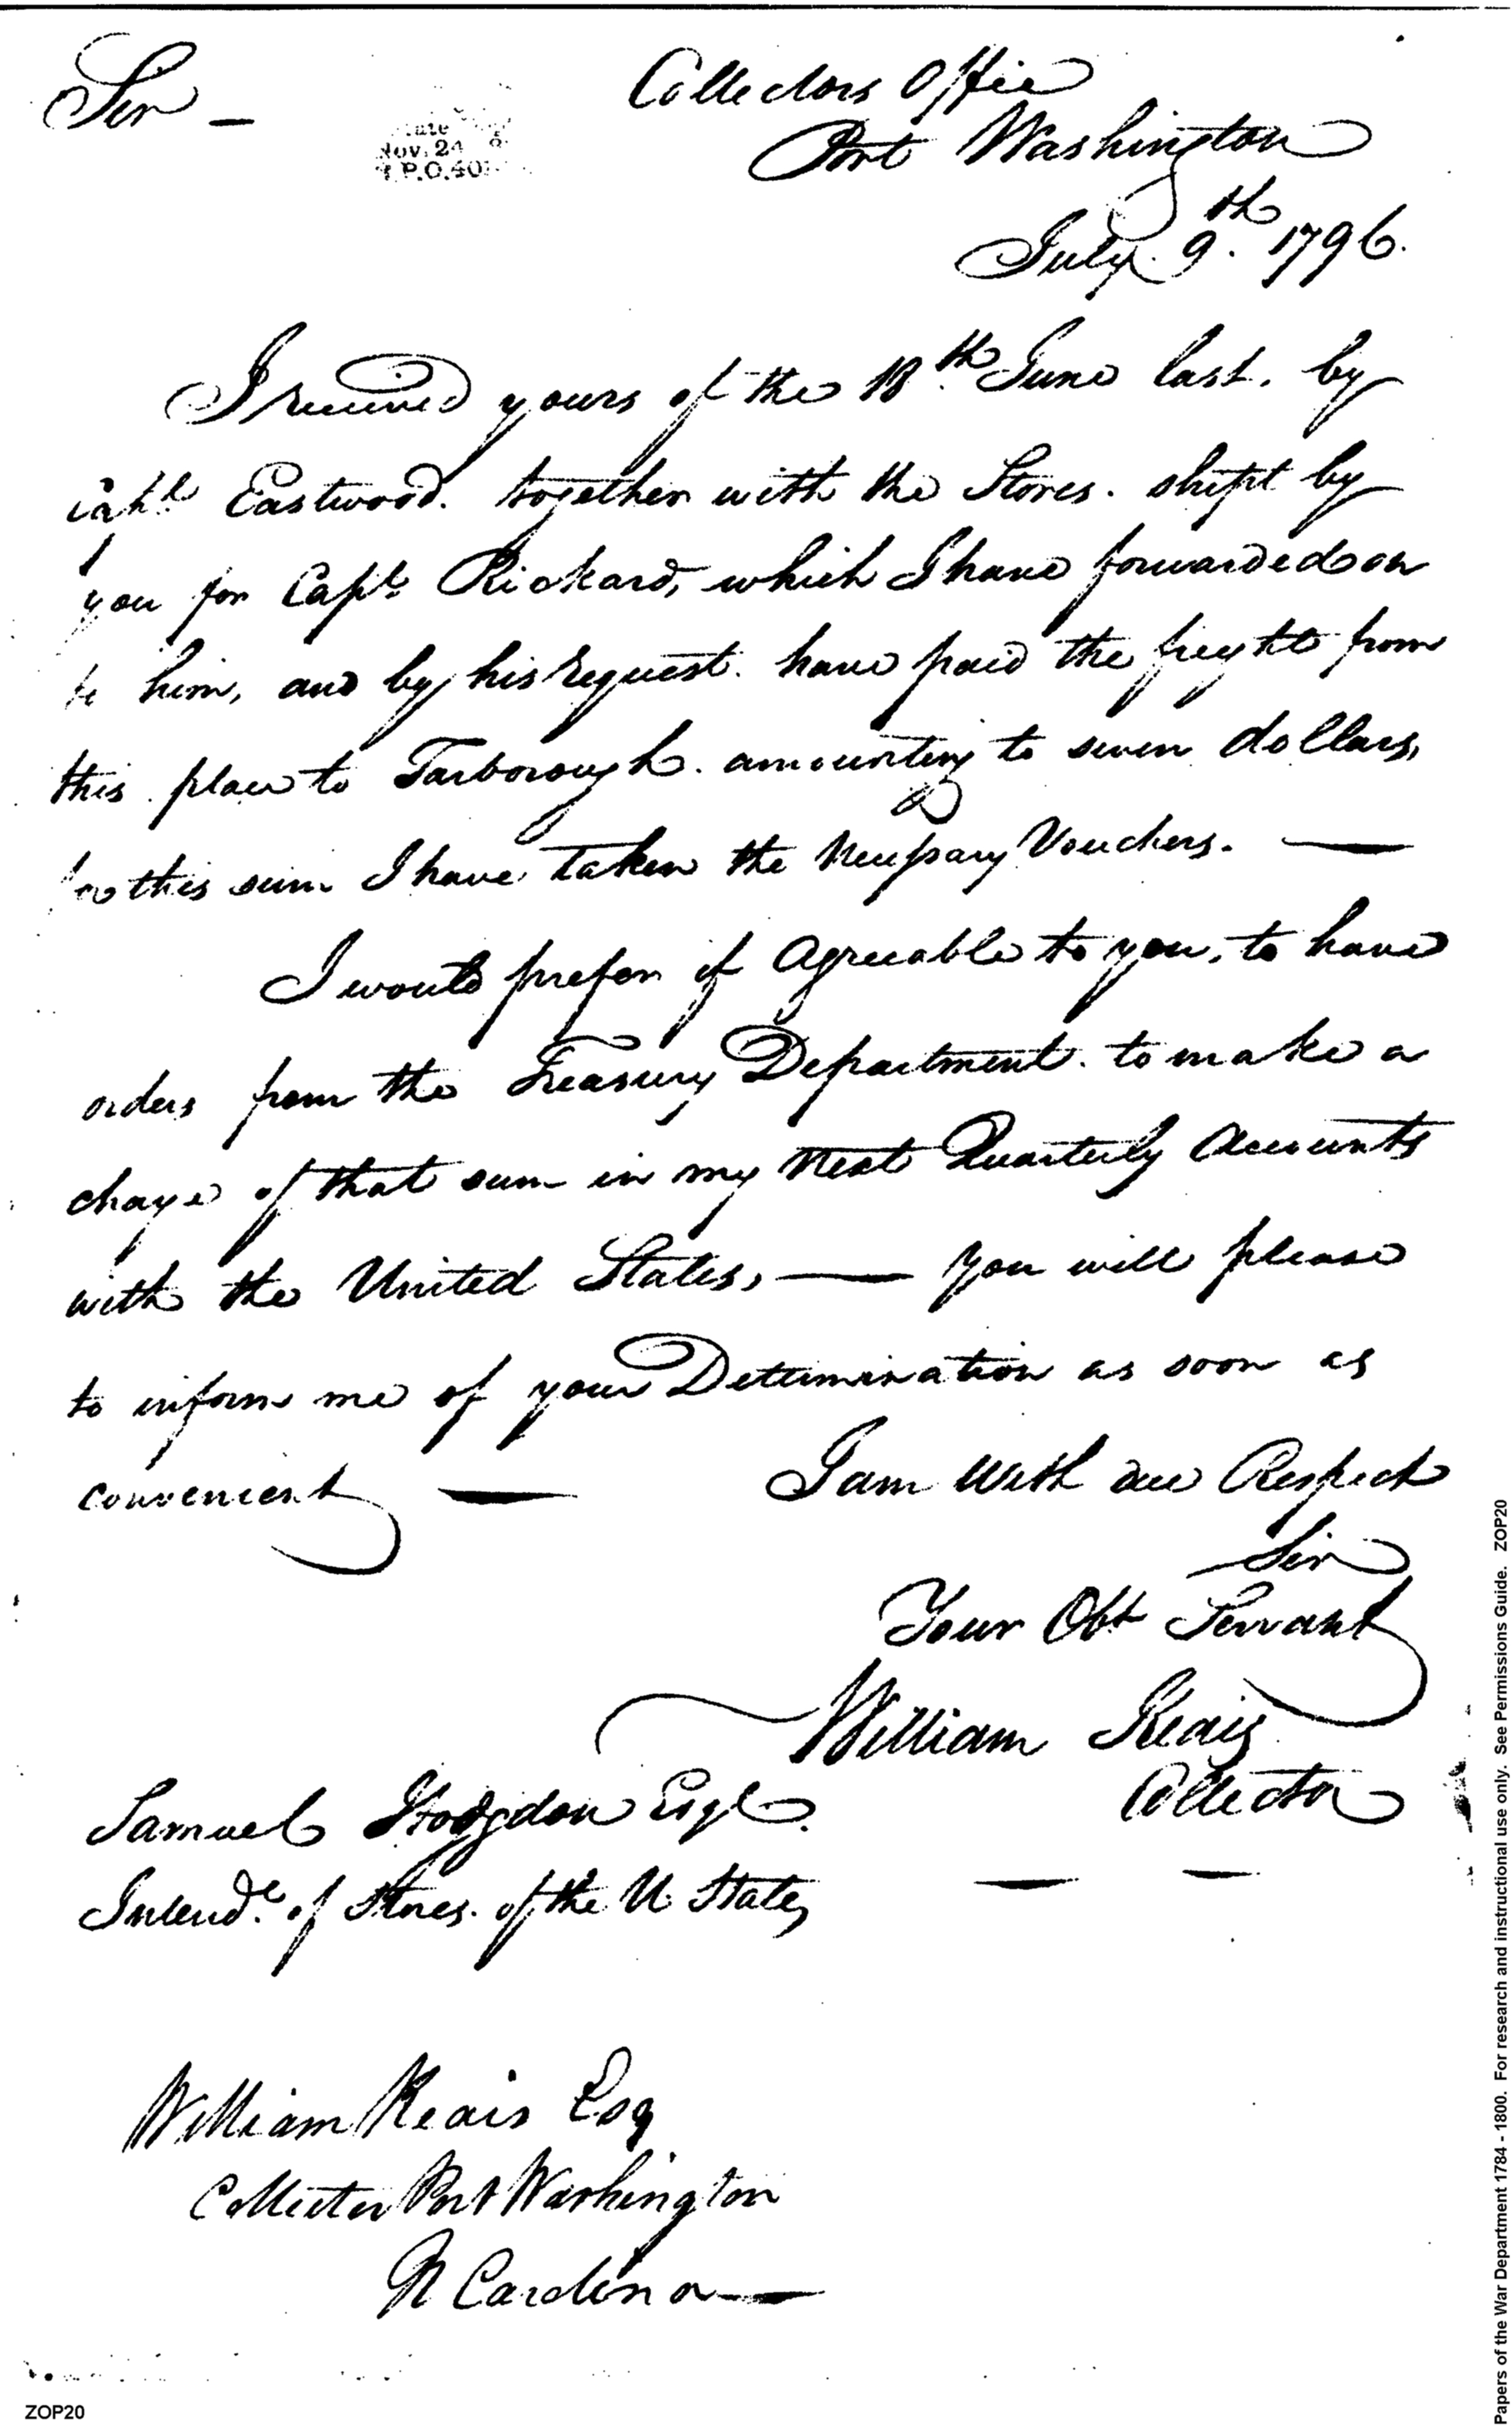 Sir —
Collectors Office
Port Washington
July 9th. 1796.
I received yours of the 18th June last. by
Capt. Eastwood. together with the Stores. shipt by
you for Capt. Rickard, which I have forwarded on
to him, and by his request. have paid the freyht from
this place to Tarborough. amounting to seven dollars,
for this sum I have taken the Necessary Vouchers. —
I would prefer if Agreeable to you, to have
orders from the Treasury Department. to make a
charge of that sum in my Next Quarterly Accounts
with the United States, — you will please
to inform me of your Determination as soon as
convenient —
I am With due Respect
Sir
Your Obt Servant
William Keais
Collector
Samuel Hodgdon Esqr.
Intendt. of Stores. of the U. States
William Keais Esq
Collector Port Washington
N Carolina —
Nov. 24
ZOP20
Papers of the War Department 1784 - 1800. For research and instructional use only. See Permissions Guide. ZOP20